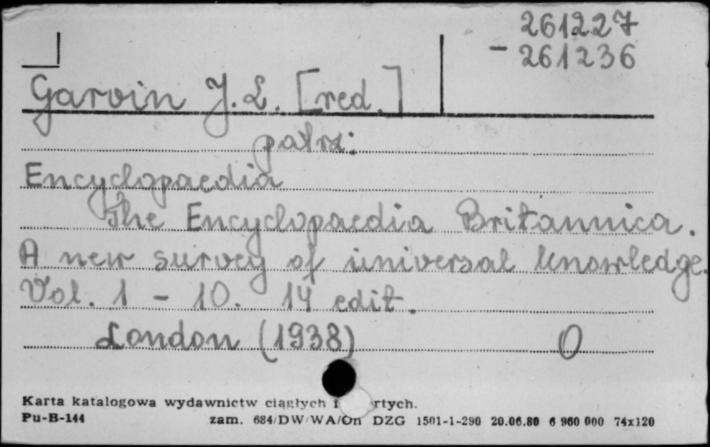 261227
- 261236
Garvin J. L. [red.]
patrz:
Encyclopaedia
The Encyclopaedia Britannica.
A new survey of universal knowledge.
Vol. 1 - 10. 14 edit.
London (1938) O
Karta katalogowa wydawnictw ciągłych i rtych.
Pu-B-144 zam. 684/DW/WA/On DZG 1501-1-290 20.06.80 6 960 000 74x120